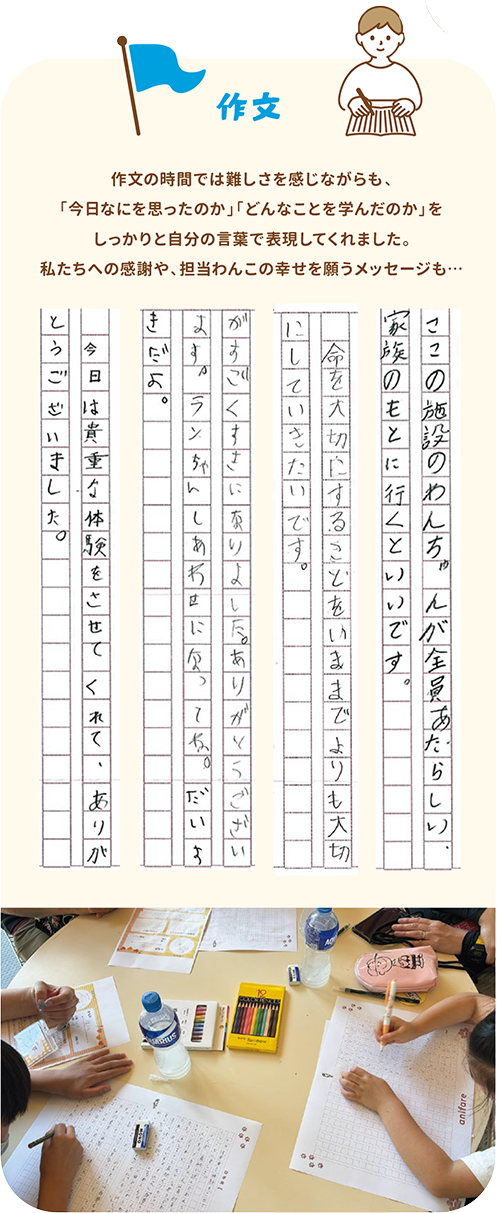 作文
作文の時間では難しさを感じながらも、
「今日なにを思ったのか」「どんなことを学んだのか」を
しっかりと自分の言葉で表現してくれました。
私たちへの感謝や、担当わんこの幸せを願うメッセージも…
ここの施設のわんちゃんが全員あたらしい、
家族のもとに行くといいです。
命を大切にするこどをいままでよりも大切
にしていきたいです。
がすごくすきになりました。ありがとうござい
ます。ランちゃんしあわせに気ってね。だいす
きだよ。
今日は貴重な体験をさせてくれて、ありが
とうございました。
AQUARIUS
anifare